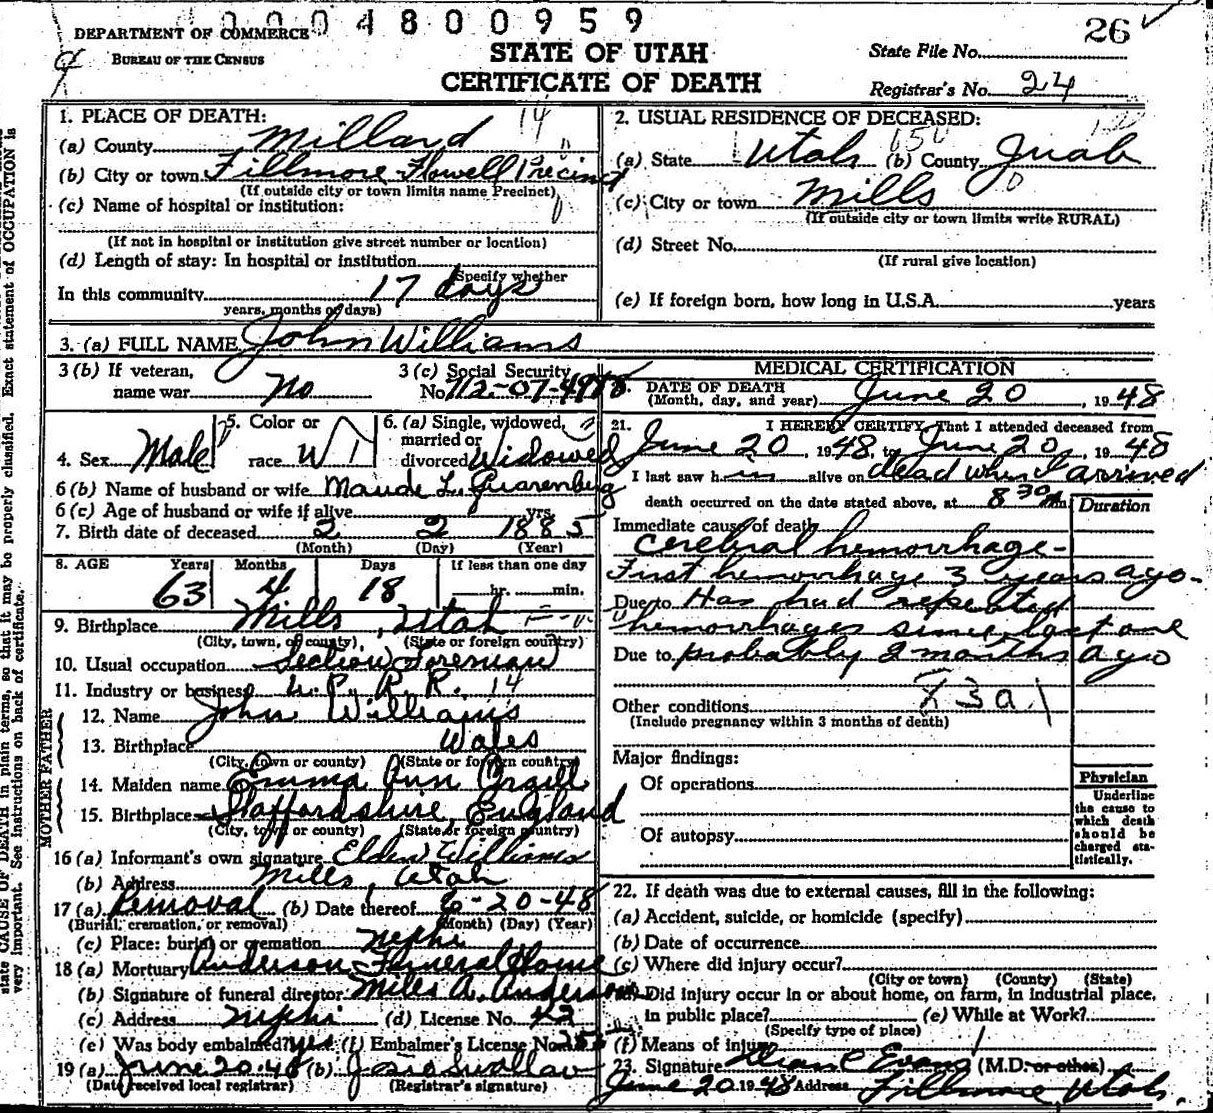 0004800959
26
DEPARTMENT OF COMMERCE
BUREAU OF THE CENSUS
STATE OF UTAH
CERTIFICATE OF DEATH
State File No.
Registrar's No. 24
1. PLACE OF DEATH: 14
(a) County Millard
(b) City or town Fillmore Flowell Precinct
(If outside city or town limits name Precinct)
(c) Name of hospital or institution:
(If not in hospital or institution give street number or location)
(d) Length of stay: In hospital or institution
Specify whether
In this community 17 days
years, months or days)
2. USUAL RESIDENCE OF DECEASED:
(a) State Utah (b) County Juab
(c) City or town Mills
(If outside city or town limits write RURAL)
(d) Street No.
(If rural give location)
(e) If foreign born, how long in U.S.A. years
3. (a) FULL NAME John Williams
3 (b) If veteran, name war no
3 (c) Social Security No. 712-07-
4. Sex Male
5. Color or race W
6. (a) Single, widowed, married or divorced Widowed
6 (b) Name of husband or wife Maude L.
6 (c) Age of husband or wife if alive yrs.
7. Birth date of deceased 2 2 1885
(Month) (Day) (Year)
8. AGE Years Months Days If less than one day
63 4 18 hr. min.
9. Birthplace Mills, Utah
(City, town, or county) (State or foreign country)
10. Usual occupation Section Foreman
11. Industry or business U. P. R. R. 14
FATHER
12. Name John Williams
13. Birthplace Wales
(City, town or county) (State or foreign country)
MOTHER
14. Maiden name Emma Ann Orgill
15. Birthplace Staffordshire, England
(City, town or county) (State or foreign country)
16 (a) Informant's own signature Elden Williams
(b) Address Mills, Utah
17 (a) Removal (b) Date thereof 6-20-48
(Burial, cremation, or removal) (Month) (Day) (Year)
(c) Place: burial or cremation Nephi
18 (a) Mortuary Anderson Funeral Home
(b) Signature of funeral director Miles A. Anderson
(c) Address Nephi (d) License No. 42
(e) Was body embalmed? yes (f) Embalmer's License No. 255
19 (a) June 20-48 (b) Josie Swallow
(Date received local registrar) (Registrar's signature)
MEDICAL CERTIFICATION
DATE OF DEATH
(Month, day, and year) June 20, 1948
21. I HEREBY CERTIFY, That I attended deceased from
June 20, 1948, to June 20, 1948
I last saw h im alive on dead when I arrived
death occurred on the date stated above, at 8 30 m.
Duration
Immediate cause of death
Cerebral hemorrhage-
First hemorrhage 3 years ago-
Due to Has had repeated
hemorrhages since, last one
Due to probably 2 months ago
Other conditions 83a1
(Include pregnancy within 3 months of death)
Major findings:
Of operations
Of autopsy
Physician
Underline the cause to which death should be charged statistically.
22. If death was due to external causes, fill in the following:
(a) Accident, suicide, or homicide (specify)
(b) Date of occurrence
(c) Where did injury occur?
(City or town) (County) (State)
Did injury occur in or about home, on farm, in industrial place,
in public place? (e) While at Work?
(Specify type of place)
(f) Means of injury
23. Signature Dean C Evans (M.D. or other)
June 20 1948 Address Fillmore, Utah.
state CAUSE OF DEATH in plain terms, so that it may be properly classified. Exact statement of OCCUPATION is
very important. See instructions on back of certificate.